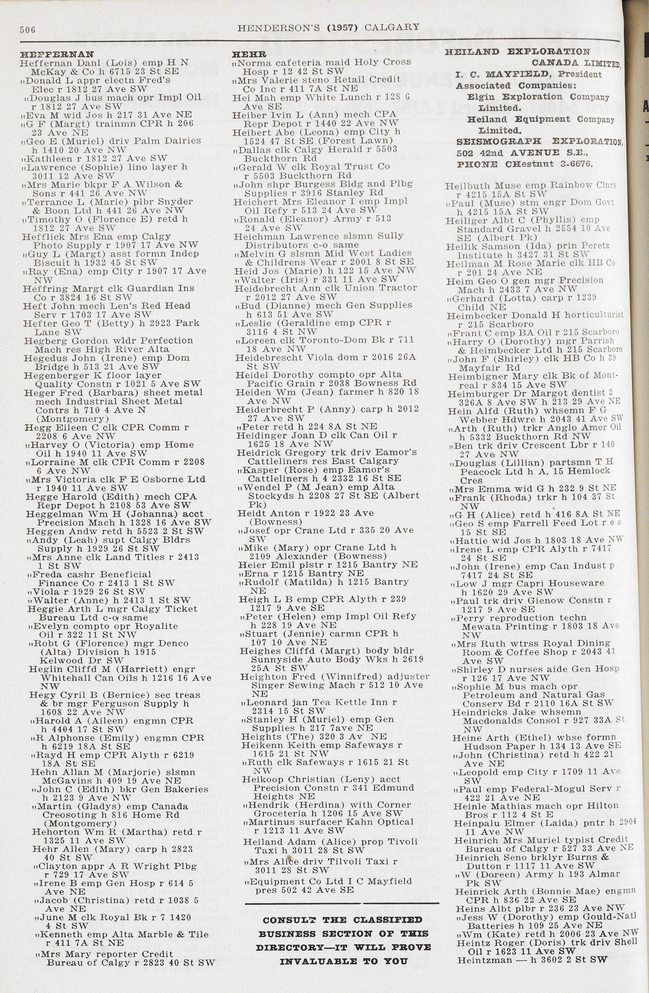 506
HENDERSON'S (1957) CALGARY
HEFFERNAN
Heffernan Danl (Lois) emp H N
McKay & Co h 6715 23 St SE
„Donald L appr electn Fred's
Elec r 1812 27 Ave SW
„Douglas J bus mach opr Impl Oil
r 1812 27 Ave SW
„Eva M wid Jos h 217 31 Ave NE
„G F (Margt) trainmn CPR h 206
23 Ave NE
„Geo E (Muriel) driv Palm Dairies
h 1410 20 Ave NW
„Kathleen r 1812 27 Ave SW
„Lawrence (Sophie) lino layer h
3011 12 Ave SW
„Mrs Marie bkpr F A Wilson &
Sons r 441 26 Ave NW
„Terrance L (Marie) plbr Snyder
& Boon Ltd h 441 26 Ave NW
„Timothy O (Florence E) retd h
1812 27 Ave SW
Hefflick Mrs Ena emp Calgy
Photo Supply r 1907 17 Ave NW
„Guy L (Margt) asst formn Indep
Biscuit h 1932 45 St SW
„Ray (Ena) emp City r 1907 17 Ave
NW
Heffring Margt clk Guardian Ins
Co r 3824 16 St SW
Heft John mech Len's Red Head
Serv r 1703 17 Ave SW
Hefter Geo T (Betty) h 2923 Park
Lane SW
Hegberg Gordon wldr Perfection
Mach res High River Alta
Hegedus John (Irene) emp Dom
Bridge h 513 21 Ave SW
Hegenberger K floor layer
Quality Constn r 1021 5 Ave SW
Heger Fred (Barbara) sheet metal
mech Industrial Sheet Metal
Contrs h 710 4 Ave N
(Montgomery)
Hegg Eileen C clk CPR Comm r
2208 6 Ave NW
„Harvey O (Victoria) emp Home
Oil h 1940 11 Ave SW
„Lorraine M clk CPR Comm r 2208
6 Ave NW
„Mrs Victoria clk F E Osborne Ltd
r 1940 11 Ave SW
Hegge Harold (Edith) mech CPA
Repr Depot h 2108 53 Ave SW
Heggelman Wm H (Johanna) acct
Precision Mach h 1328 16 Ave SW
Heggen Andw retd h 5523 2 St SW
„Andy (Leah) supt Calgy Bldrs
Supply h 1929 26 St SW
„Mrs Anne clk Land Titles r 2413
1 St SW
„Freda cashr Beneficial
Finance Co r 2413 1 St SW
„Viola r 1929 26 St SW
„Walter (Anne) h 2413 1 St SW
Heggie Arth L mgr Calgy Ticket
Bureau Ltd c-o same
„Evelyn compto opr Royalite
Oil r 322 11 St NW
„Robt G (Florence) mgr Denco
(Alta) Division h 1915
Kelwood Dr SW
Heglin Cliffd M (Harriett) engr
Whitehall Can Oils h 1216 16 Ave
NW
Hegy Cyril B (Bernice) sec treas
& br mgr Ferguson Supply h
1608 22 Ave NW
„Harold A (Aileen) engmn CPR
h 4404 17 St SW
„R Alphonse (Emily) engmn CPR
h 6219 18A St SE
„Rayd H emp CPR Alyth r 6219
18A St SE
Hehn Allan M (Marjorie) slsmn
McGavins h 409 19 Ave NE
„John C (Edith) bkr Gen Bakeries
h 2123 9 Ave NW
„Martin (Gladys) emp Canada
Creosoting h 816 Home Rd
(Montgomery)
Hehorton Wm R (Martha) retd r
1325 11 Ave SW
Hehr Allen (Mary) carp h 2823
40 St SW
„Clayton appr A R Wright Plbg
r 729 17 Ave SW
„Irene B emp Gen Hosp r 614 5
Ave NE
„Jacob (Christina) retd r 1038 5
Ave NE
„June M clk Royal Bk r 7 1420
4 St SW
„Kenneth emp Alta Marble & Tile
r 411 7A St NE
„Mrs Mary reporter Credit
Bureau of Calgy r 2823 40 St SW
HEHR
„Norma cafeteria maid Holy Cross
Hosp r 12 42 St SW
„Mrs Valerie steno Retail Credit
Co Inc r 411 7A St NE
Hei Mah emp White Lunch r 128 6
Ave SE
Heiber Ivin L (Ann) mech CPA
Repr Depot r 1440 22 Ave NW
Heibert Abe (Leona) emp City h
1524 47 St SE (Forest Lawn)
„Dallas clk Calgy Herald r 5503
Buckthorn Rd
„Gerald W clk Royal Trust Co
r 5503 Buckthorn Rd
„John shpr Burgess Bldg and Plbg
Supplies r 3916 Stanley Rd
Heichert Mrs Eleanor I emp Impl
Oil Refy r 513 24 Ave SW
„Ronald (Eleanor) Army r 513
24 Ave SW
Heichman Lawrence slsmn Sully
Distributors c-o same
„Melvin G slsmn Mid West Ladies
& Childrens Wear r 2001 8 St SE
Heid Jos (Marie) h 122 15 Ave NW
„Walter (Iris) r 331 11 Ave SW
Heidebrecht Ann clk Union Tractor
r 2012 27 Ave SW
„Bud (Dianne) mech Gen Supplies
h 613 51 Ave SW
„Leslie (Geraldine emp CPR r
3116 4 St NW
„Loreen clk Toronto-Dom Bk r 711
18 Ave NW
Heidebrescht Viola dom r 2016 26A
St SW
Heidel Dorothy compto opr Alta
Pacific Grain r 2038 Bowness Rd
Heiden Wm (Jean) farmer h 820 18
Ave NW
Heiderbrecht P (Anny) carp h 2012
27 Ave SW
„Peter retd h 224 8A St NE
Heidinger Joan D clk Can Oil r
1625 18 Ave NW
Heidrick Gregory trk driv Eamor's
Cattleliners res East Calgary
„Kasper (Rose) emp Eamor's
Cattleliners h 4 2332 16 St SE
„Wendel P (M Jean) emp Alta
Stockyds h 2208 27 St SE (Albert
Pk)
Heidt Anton r 1922 23 Ave
(Bowness)
„Josef opr Crane Ltd r 335 20 Ave
SW
„Mike (Mary) opr Crane Ltd h
2109 Alexander (Bowness)
Heier Emil plstr r 1215 Bantry NE
„Erna r 1215 Bantry NE
„Rudolf (Matilda) h 1215 Bantry
NE
Heigh L B emp CPR Alyth r 239
1217 9 Ave SE
„Peter (Helen) emp Impl Oil Refy
h 228 19 Ave NE
„Stuart (Jennie) carmn CPR h
107 10 Ave NE
Heighes Cliffd (Margt) body bldr
Sunnyside Auto Body Wks h 2619
25A St SW
Heighton Fred (Winnifred) adjuster
Singer Sewing Mach r 512 10 Ave
NE
„Leonard jan Tea Kettle Inn r
2314 15 St SW
„Stanley H (Muriel) emp Gen
Supplies h 217 7ave NE
Heights (The) 320 3 Av NE
Heikenn Keith emp Safeways r
1615 21 St NW
„Ruth clk Safeways r 1615 21 St
NW
Heikoop Christian (Leny) acct
Precision Constn r 341 Edmund
Heights NE
„Hendrik (Herdina) with Corner
Groceteria h 1206 15 Ave SW
„Martinus surfacer Kahn Optical
r 1213 11 Ave SW
Heiland Adam (Alice) prop Tivoli
Taxi h 3011 28 St SW
„Mrs Alice driv Tilvoli Taxi r
3011 28 St SW
„Equipment Co Ltd I C Mayfield
pres 502 42 Ave SE
CONSULT THE CLASSIFIED
BUSINESS SECTION OF THIS
DIRECTORY—IT WILL PROVE
INVALUABLE TO YOU
HEILAND EXPLORATION
CANADA LIMITED,
I. C. MAYFIELD, President
Associated Companies:
Elgin Exploration Company
Limited.
Heiland Equipment Company
Limited.
SEISMOGRAPH EXPLORATION,
502 42nd AVENUE S.E.,
PHONE CHestnut 3-6676.
Heilbuth Muse emp Rainbow Clnrs
r 4215 15A St SW
„Paul (Muse) stm engr Dom Govt
h 4215 15A St SW
Heiliger Albt C (Phyllis) emp
Standard Gravel h 2554 10 Ave
SE (Albert Pk)
Heilik Samson (Ida) prin Peretz
Institute h 3427 31 St SW
Heilman M Rose Marie clk HB Co
r 201 24 Ave NE
Heim Geo O gen mgr Precision
Mach h 2433 7 Ave NW
„Gerhard (Lotta) carp r 1239
Child NE
Heimbecker Donald H horticulturist
r 215 Scarboro
„Frant C emp BA Oil r 215 Scarboro
„Harry O (Dorothy) mgr Parrish
& Heimbecker Ltd h 215 Scarboro
„John F (Shirley) clk HB Co h 39
Mayfair Rd
Heimbigner Mary clk Bk of Mont-
real r 834 15 Ave SW
Heimburger Dr Margot dentist 2
326A 8 Ave SW h 213 29 Ave NE
Hein Alfd (Ruth) whsemn F G
Webber Hdwre h 2043 41 Ave SW
„Arth (Ruth) trkr Anglo Amer Oil
h 5332 Buckthorn Rd NW
„Ben trk driv Crescent Lbr r 140
27 Ave NW
„Douglas (Lillian) partsmn T H
Peacock Ltd h A, 15 Hemlock
Cres
„Mrs Emma wid G h 232 9 St NE
„Frank (Rhoda) trkr h 104 37 St
NW
„G H (Alice) retd h 416 8A St NE
„Geo S emp Farrell Feed Lot r e s
15 St SE
„Hattie wid Jos h 1803 18 Ave NW
„Irene L emp CPR Alyth r 7417
24 St SE
„John (Irene) emp Can Indust p
7417 24 St SE
„Low J mgr Capri Houseware
h 1620 29 Ave SW
„Paul trk driv Gienow Constn r
1217 9 Ave SE
„Perry reproduction techn
Mewata Printing r 1803 18 Ave
NW
„Mrs Ruth wtrss Royal Dining
Room & Coffee Shop r 2043 41
Ave SW
„Shirley D nurses aide Gen Hosp
r 126 17 Ave NW
„Sophie M bus mach opr
Petroleum and Natural Gas
Conserv Bd r 2110 16A St SW
Heindricks Jake whsemn
Macdonalds Consol r 927 33A St
NW
Heine Arth (Ethel) whse formn
Hudson Paper h 134 13 Ave SE
„John (Christina) retd h 422 21
Ave NE
„Leopold emp City r 1709 11 Ave
SW
„Paul emp Federal-Mogul Serv r
422 21 Ave NE
Heinle Mathias mach opr Hilton
Bros r 112 4 St E
Heinpalu Elmer (Laida) pntr h 2904
11 Ave NW
Heinrich Mrs Muriel typist Credit
Bureau of Calgy r 527 33 Ave NE
Heinrich Seno brklyr Burns &
Dutton r 1117 11 Ave SW
„W (Doreen) Army h 193 Almar
Pk SW
Heinrick Arth (Bonnie Mae) engmn
CPR h 836 22 Ave SE
Heins Albt plbr r 236 23 Ave NW
„Jess W (Dorothy) emp Gould-Natl
Batteries h 109 25 Ave NE
„Wm (Kate) retd h 2006 23 Ave NW
Heintz Roger (Doris) trk driv Shell
Oil r 1623 11 Ave SW
Heintzman — h 3602 2 St SW